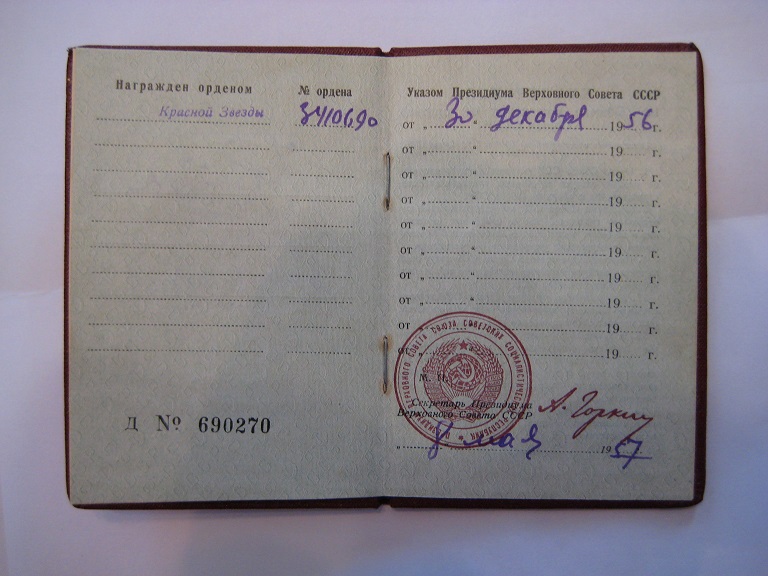 Награжден орденом
№ ордена
Красной Звезды
3410690
Д № 690270
Указом Президиума Верховного Совета СССР
от „ 30. декабря 1956г.
от „ “ 19 г.
от „ “ 19 г.
от „ “ 19 г.
от „ “ 19 г.
от „ “ 19 г.
от „ “ 19 г.
от „ “ 19 г.
от „ 19 г.
от „ 19 г.
М. П.
Секретарь Президиума
Верховного Совета СССР
А. Горкин
„ 8 мая 1957 г.